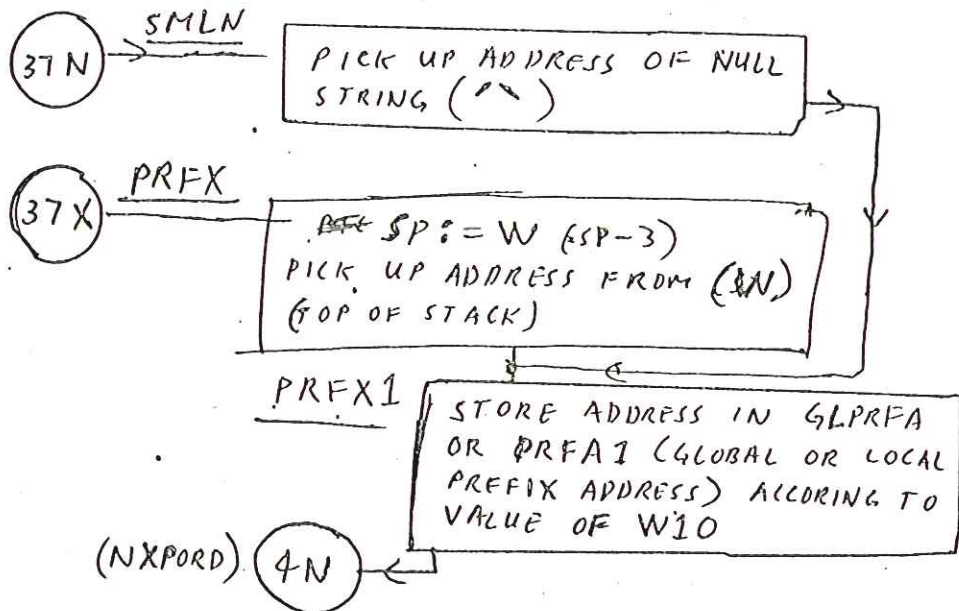 37N
SMLN
PICK UP ADDRESS OF NULL
STRING (^^)
37X
PRFX
SP := W (SP-3)
PICK UP ADDRESS FROM
(TOP OF STACK)
PRFX1
STORE ADDRESS IN GLPRFA
OR PRFA1 (GLOBAL OR LOCAL
PREFIX ADDRESS) ACCORING TO
VALUE OF W10
(NXPORD)
4N